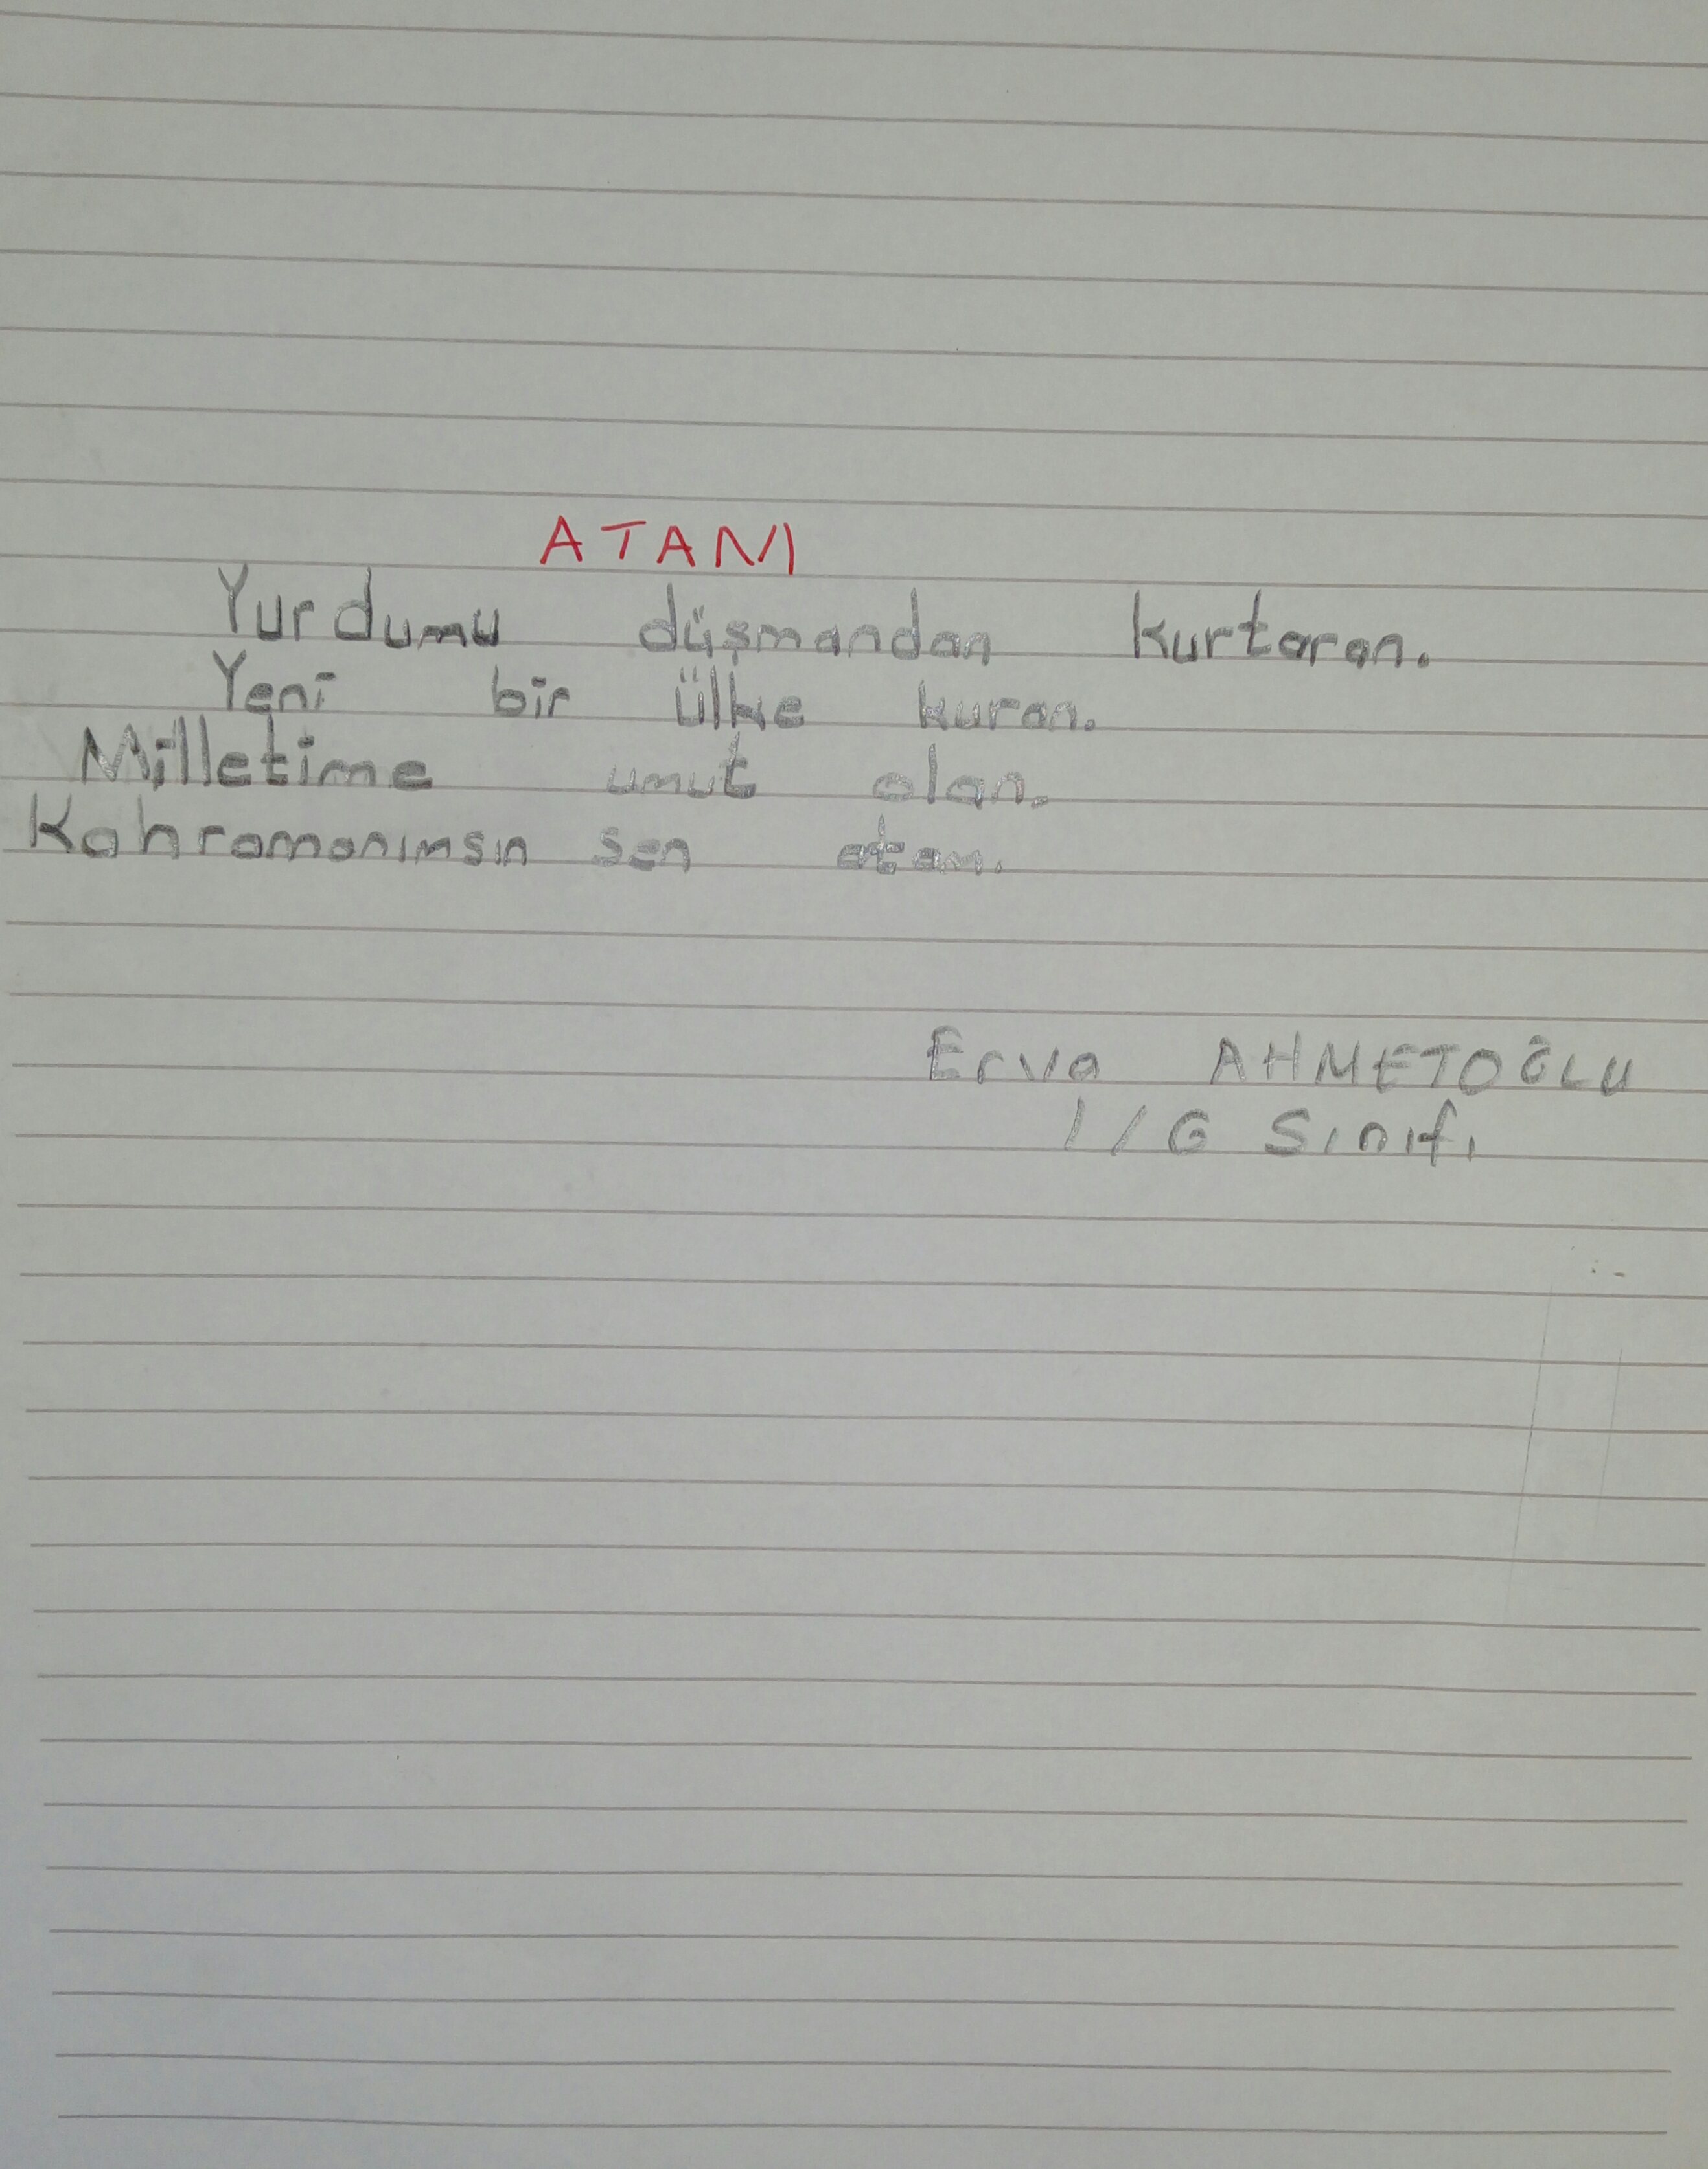 ATAM
Yurdumu düşmandan kurtaran.
Yeni bir ülke kuran.
Milletime umut olan.
Kahramanımsın sen atam.
Erva AHMETOĞLU
1/G Sınıfı